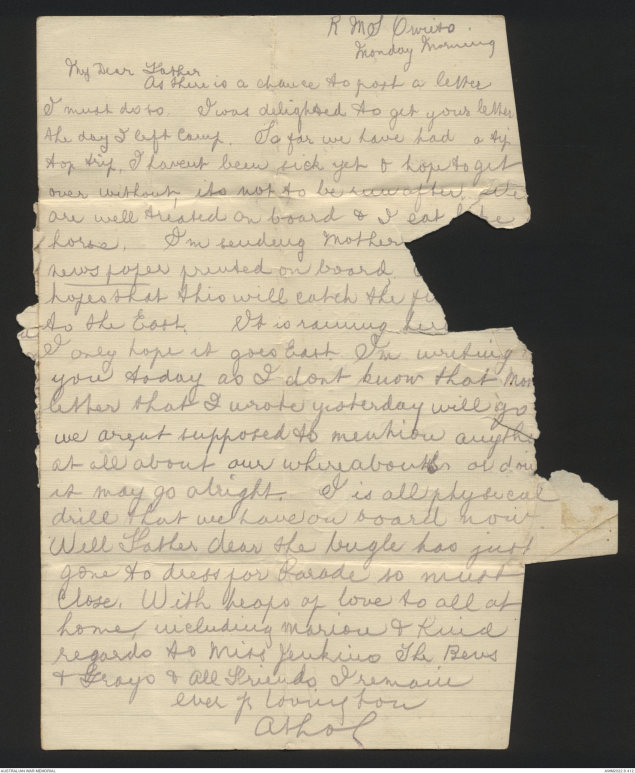 R M S Orvieto.
Monday Morning
My Dear Father
As there is a chance to post a letter
I must do so. I was delighted to get your letter
the day I left Camp. So far we have had a tip
top trip, I havent been sick yet & hope to get
over without, its not to be
are well treated on board & I eat like
horse. I'm sending Mother
newspaper printed on board.
hopes that this will catch the
to the East. It is raining
I only hope it goes East. I'm writing
you today as I dont know that
letter that I wrote yesterday will go
we arent supposed to mention
at all about our whereabouts or
it may go alright. I is all physical
drill that we have on board now
Well Father dear the bugle has just
gone to dress for Parade so must
Close. With heaps of love to all at
home, including Marion & Kind
regards to Miss Jenkins The Bevs
& Grays & All Friends I remain
ever yr loving son
Athol
AUSTRALIAN WAR MEMORIAL